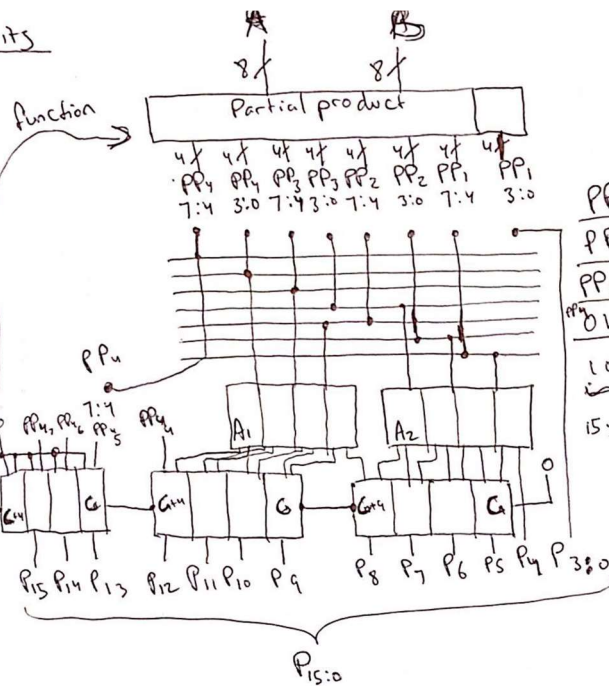 its
A B
8 8
function
Partial product
4 4 4 4 4 4 4 4
PP4 PP4 PP3 PP3 PP2 PP2 PP1 PP1
7:4 3:0 7:4 3:0 7:4 3:0 7:4 3:0
PP
PP
PP
PP4
15:
PP4
7:4
PP4,7 PP4,6 PP4,5
PP4,4
A1 A2
Ci+4 Ci Ci+4 Ci Ci+4 Ci
0
P15 P14 P13 P12 P11 P10 P9 P8 P7 P6 P5 P4 P3:0
P15:0